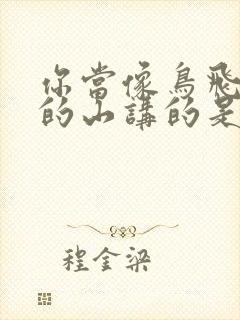 你當像鳥飛
的山講的是
程金梁